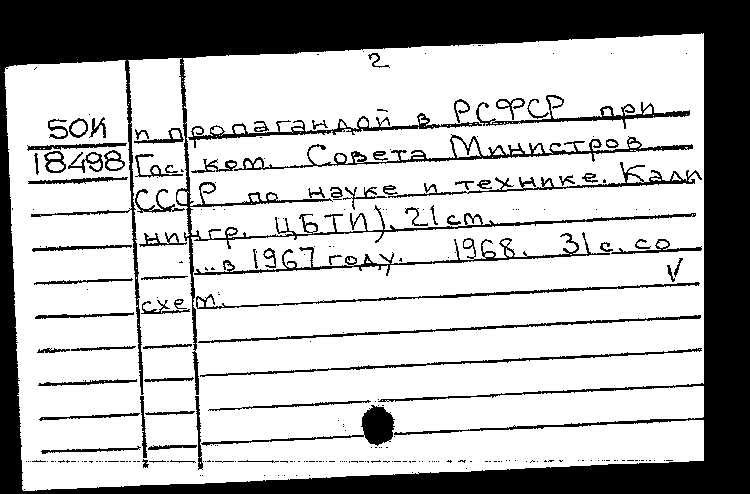 2
50К и пропагандой в РСФСР при
18498 Гос. ком. Совета Министров
СССР по науке и технике. Кали
нингр. ЦБТИ). 21 ст.
...в 1967 году. 1968. 31 с. со
схем. V